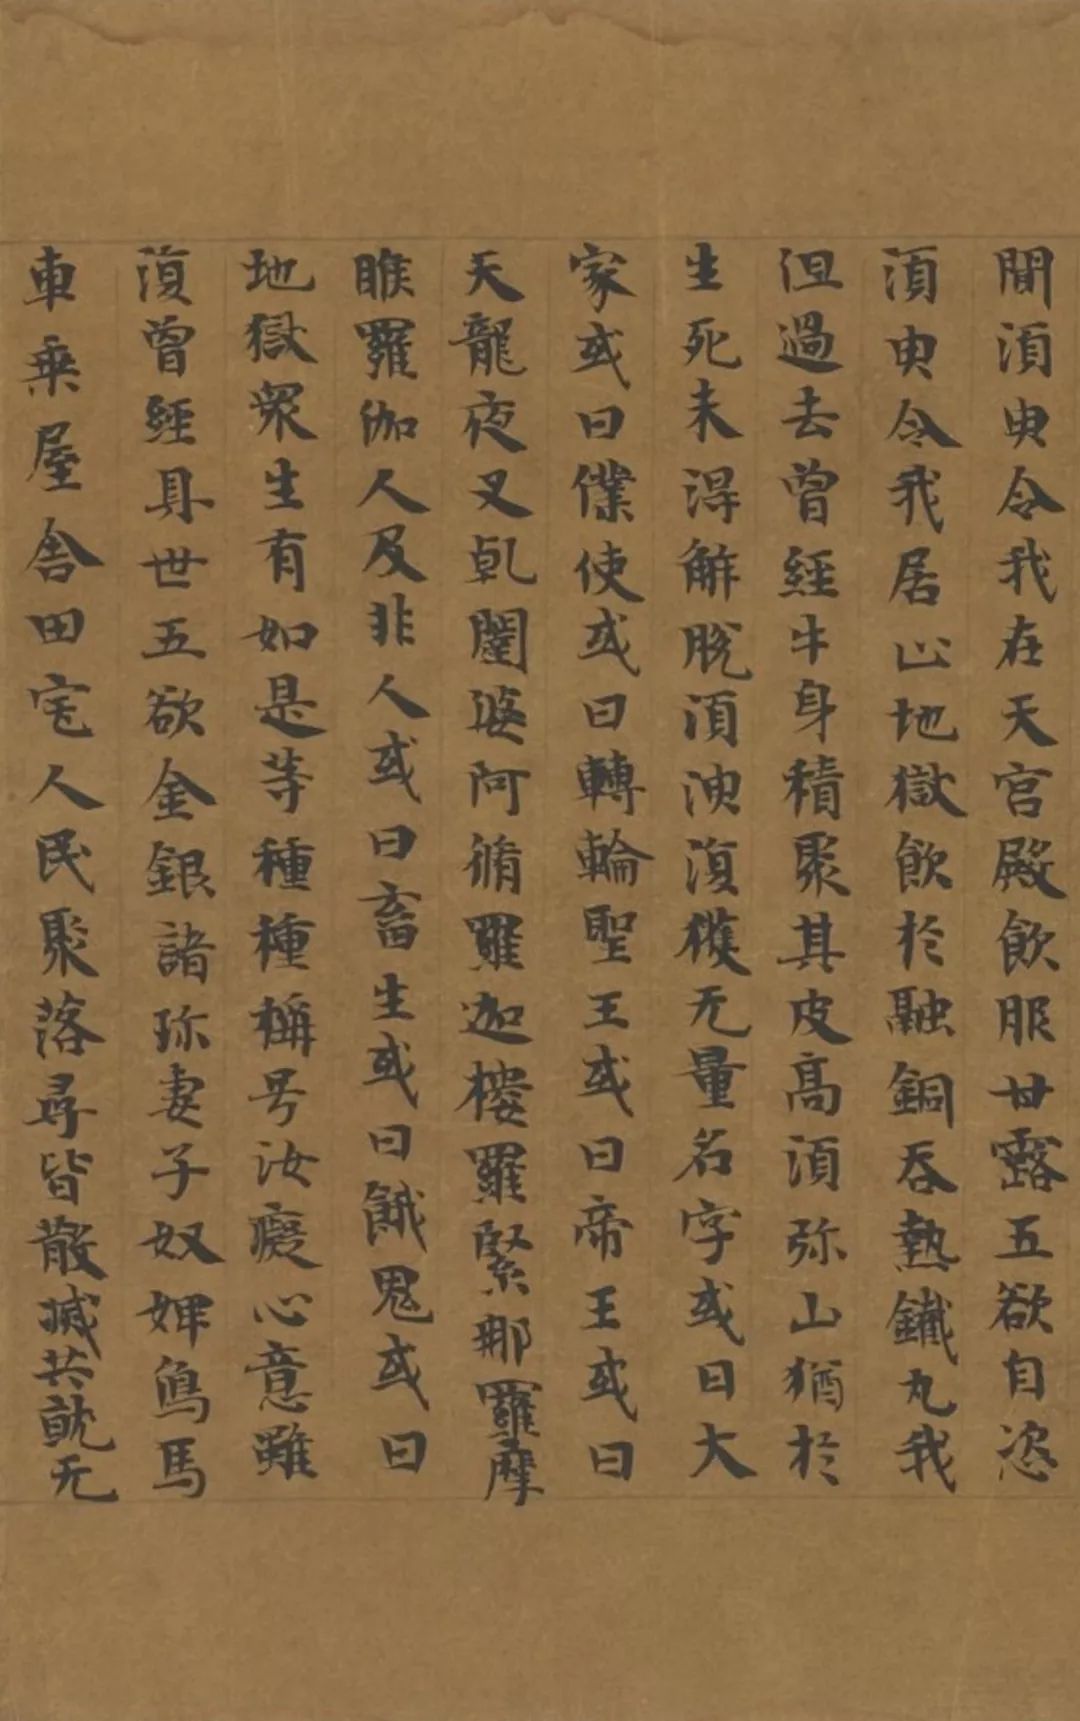 間須臾令我在天宮殿飲服甘露五欲自恣
須臾令我居止地獄飲於融銅吞熱鐵丸我
但過去曾經牛身積聚其皮高須弥山猶於
生死未得解脫須臾復獲无量名字或曰大
家或曰僕使或曰轉輪聖王或曰帝王或曰
天龍夜叉乹闥婆阿脩羅迦樓羅緊那羅摩
睺羅伽人及非人或曰畜生或曰餓鬼或曰
地獄眾生有如是等種種稱号汝癡心意雖
復曾經具世五欲金銀諸珎妻子奴婢烏馬
車乘屋舍田宅人民聚落尋皆散滅共就无